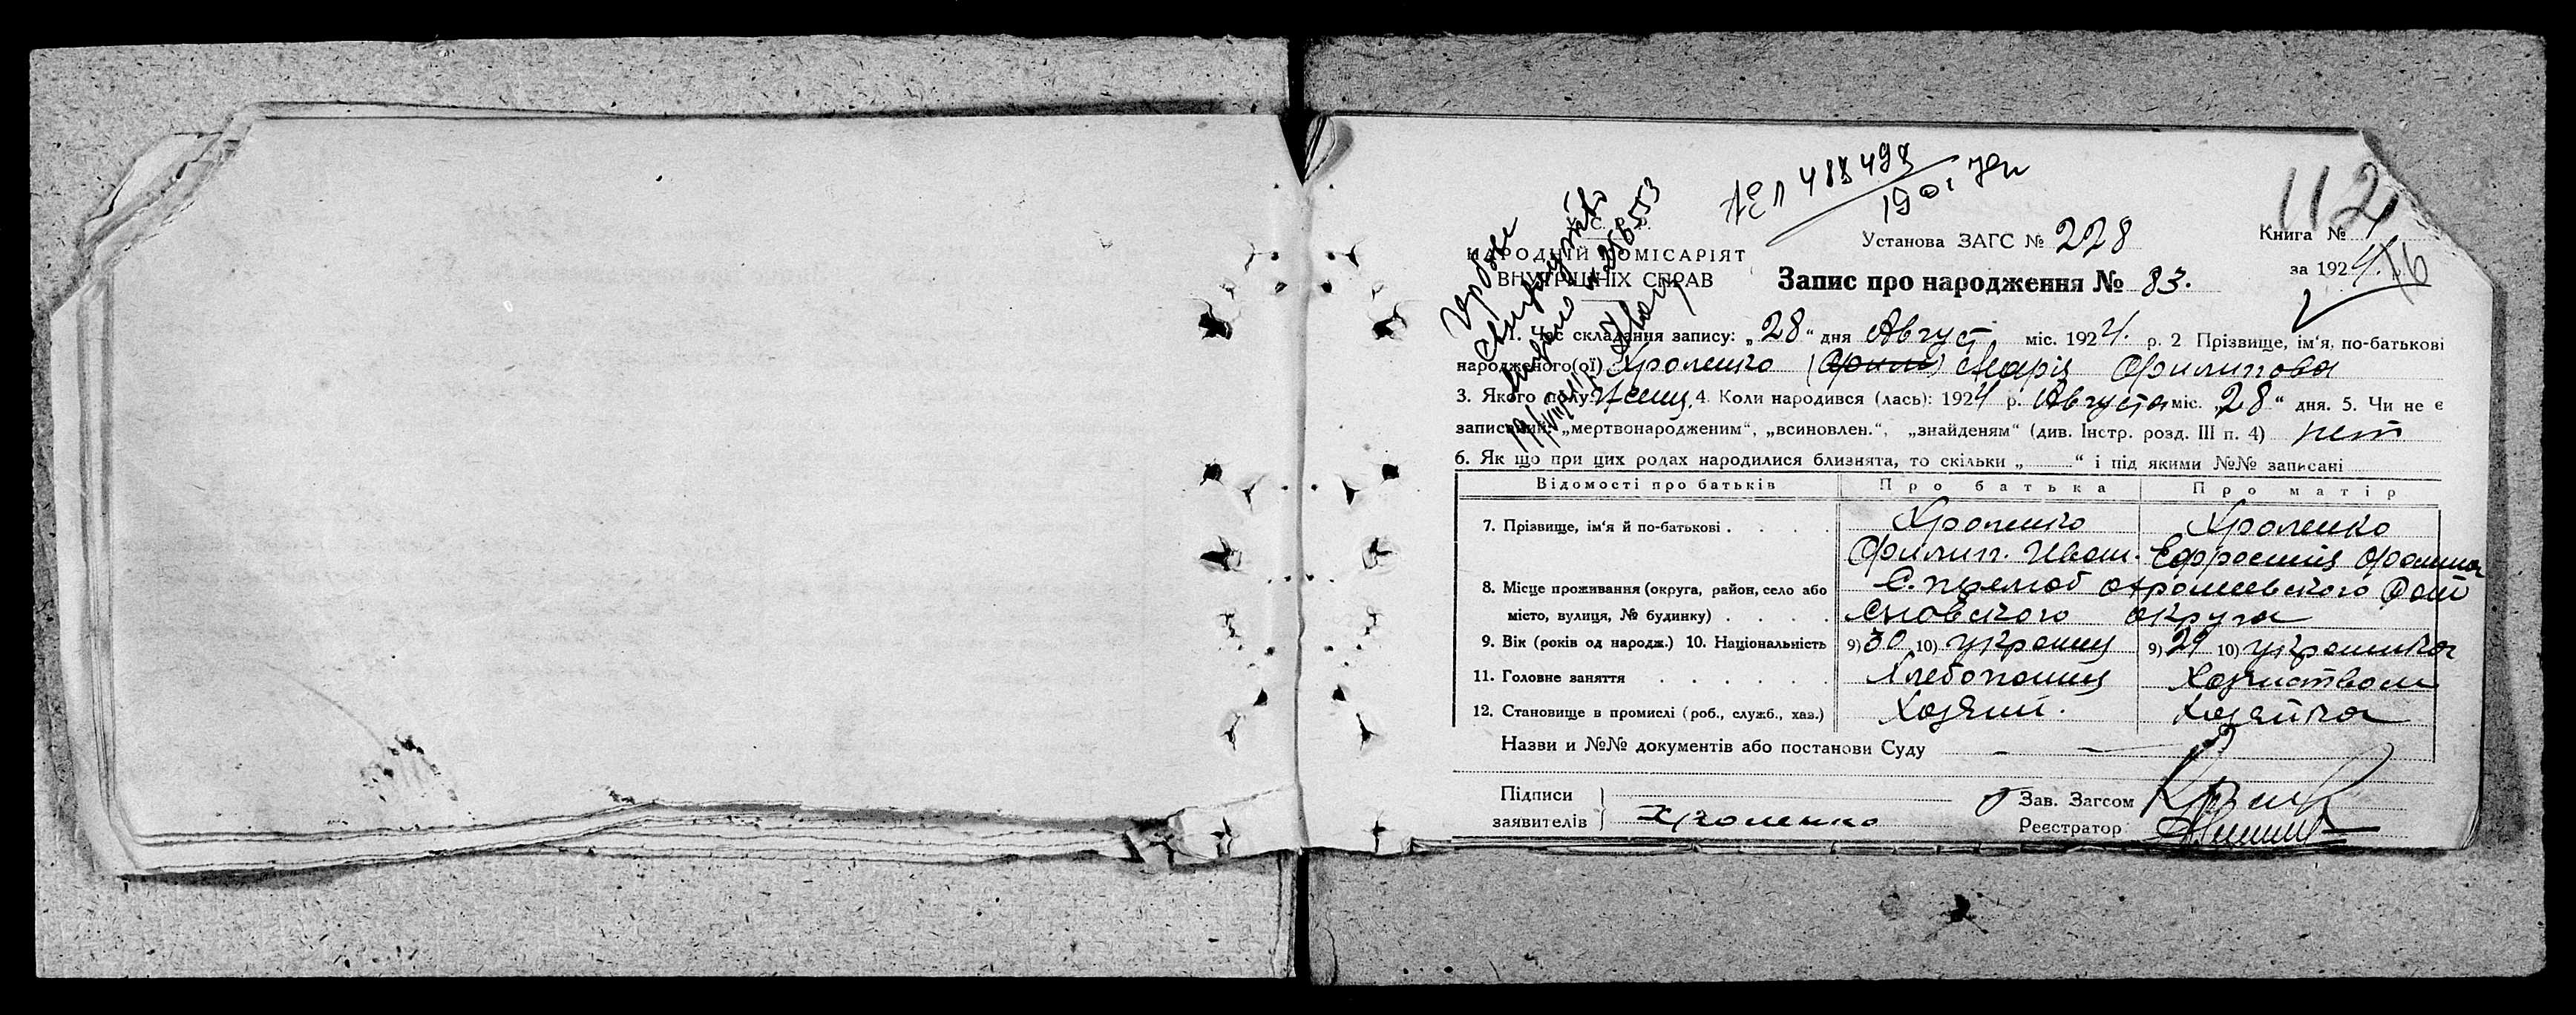 112
У. С. Р. Р.
НАРОДНІЙ КОМІСАРІЯТ
ВНУТРІШНІХ СПРАВ
Установа ЗАГС № 228
Книга № 1
за 1924 р.
Запис про народження № 83.
1. Час складання запису: „28“ дня Август міс. 1924. р. 2 Прізвище, ім'я, по-батькові
народженого(ої) Хроленко Марія Филипова
3. Якого полу Женщ. 4. Коли народився (лась): 1924 р. Августа міс. „28“ дня. 5. Чи не є
записаний: „мертвонародженим“, „всиновлен.“, „знайденям“ (див. Інстр. розд. III п. 4) нет
6. Як що при цих родах народилися близнята, то скільки „ “ і під якими №№ записані
Відомості про батьків Про батька Про матір
7. Прізвище, ім'я й по-батькові . . . . Хроленко Хроленко
Филип. Иван. Ефросинія
8. Місце проживання (округа, район, село або С.
місто, вулиця, № будинку) . . . . Сновського округа
9. Вік (років од народж.) 10. Національність 9) 30 10) украинец 9) 29 10) украинка
11. Головне заняття . . . . . . Хлебопашец Хозяйством
12. Становище в промислі (роб., служб., хаз.) Хозяин. Хозяйка
Назви и №№ документів або постанови Суду –
Підписи
заявителів } Хроленко
Зав. Загсом
Реєстратор